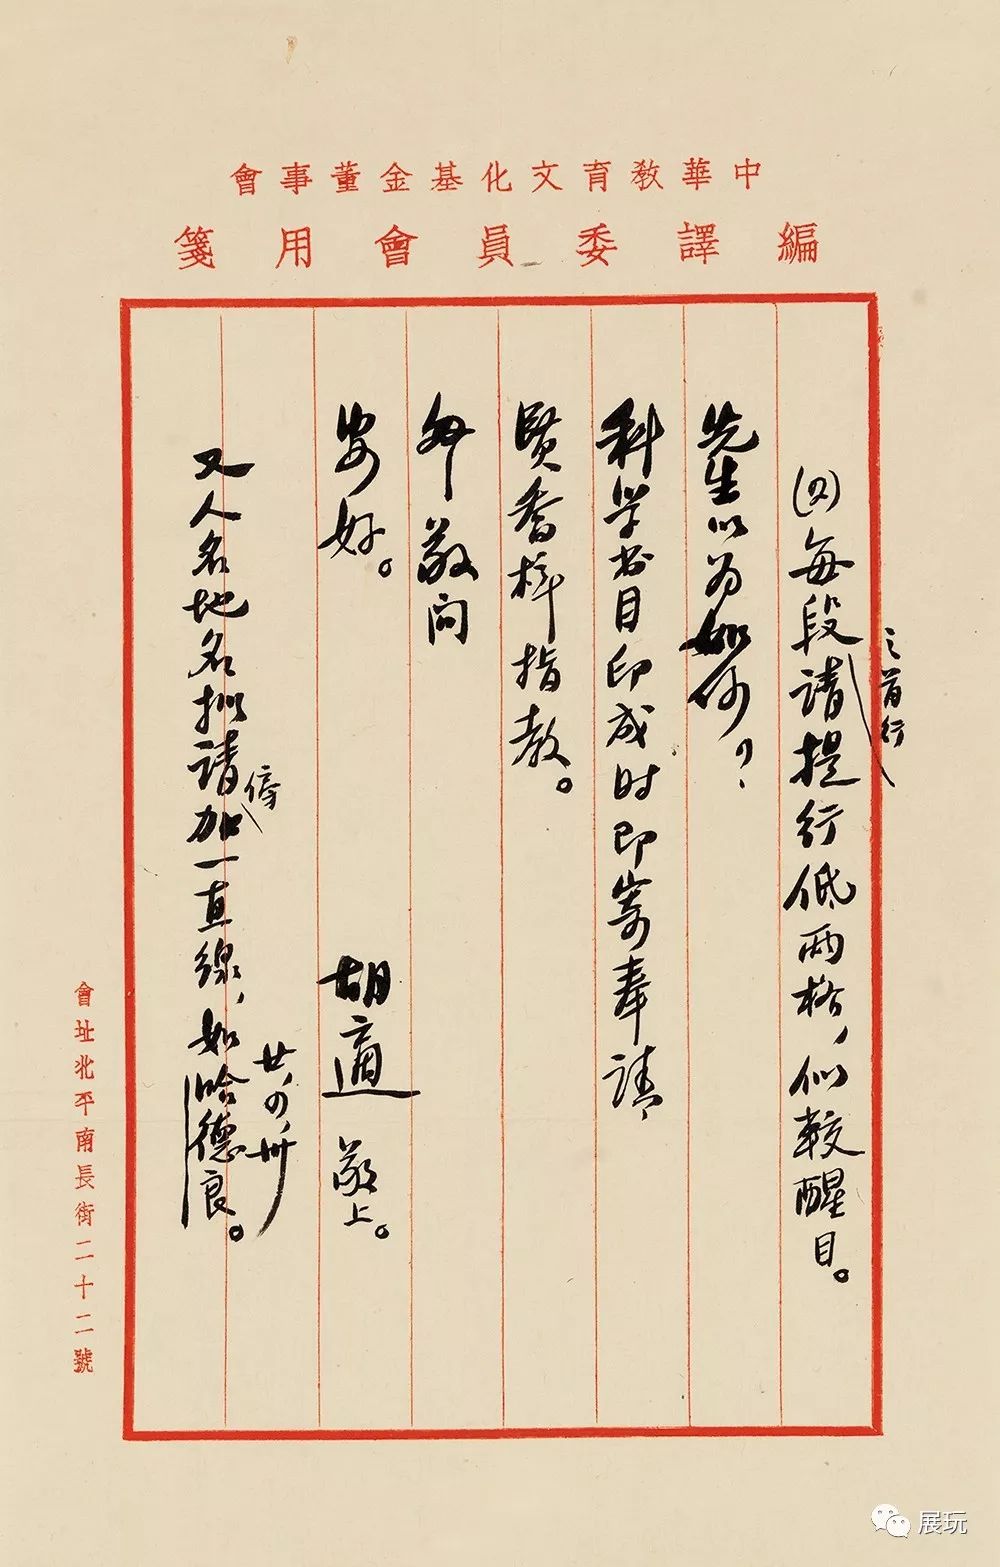 中華教育文化基金董事會
編譯委員會用箋
(四)每段之首行请提行低两格，似較醒目。
先生以为如何？
科学书目印成时即寄奉请
賢喬梓指教。
敬问
安好。
胡適 敬上。
廿，四，卅
又人名地名拟请傍加一直線，如哈德良。
會址北平南長街二十二號
展玩